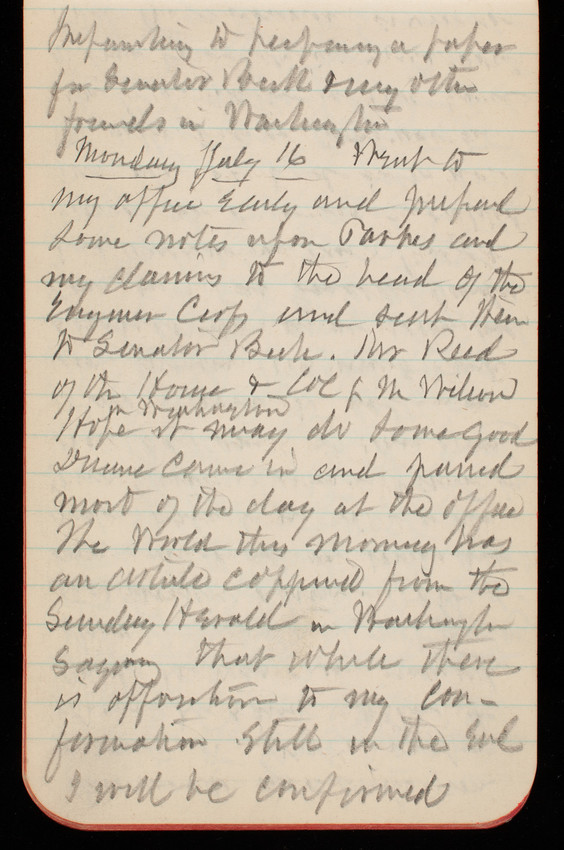 preparatory to preparing a paper
for Senator Beck & my other
friends in Washington
Monday July 16 Went to
my office Early and prepared
some notes upon Parkes and
my claims to the head of the
Engineer Corp and sent them
to Senator Beck. Mr Reed
of the House & Col J M Wilson
in Washington
Hope it may do some good
Duane came in and passed
most of the day at the office
The World this morning has
an article coppied from the
Sunday Herald in Washington
saying that while there
is opposition to my con-
firmation still in the End
I will be confirmed